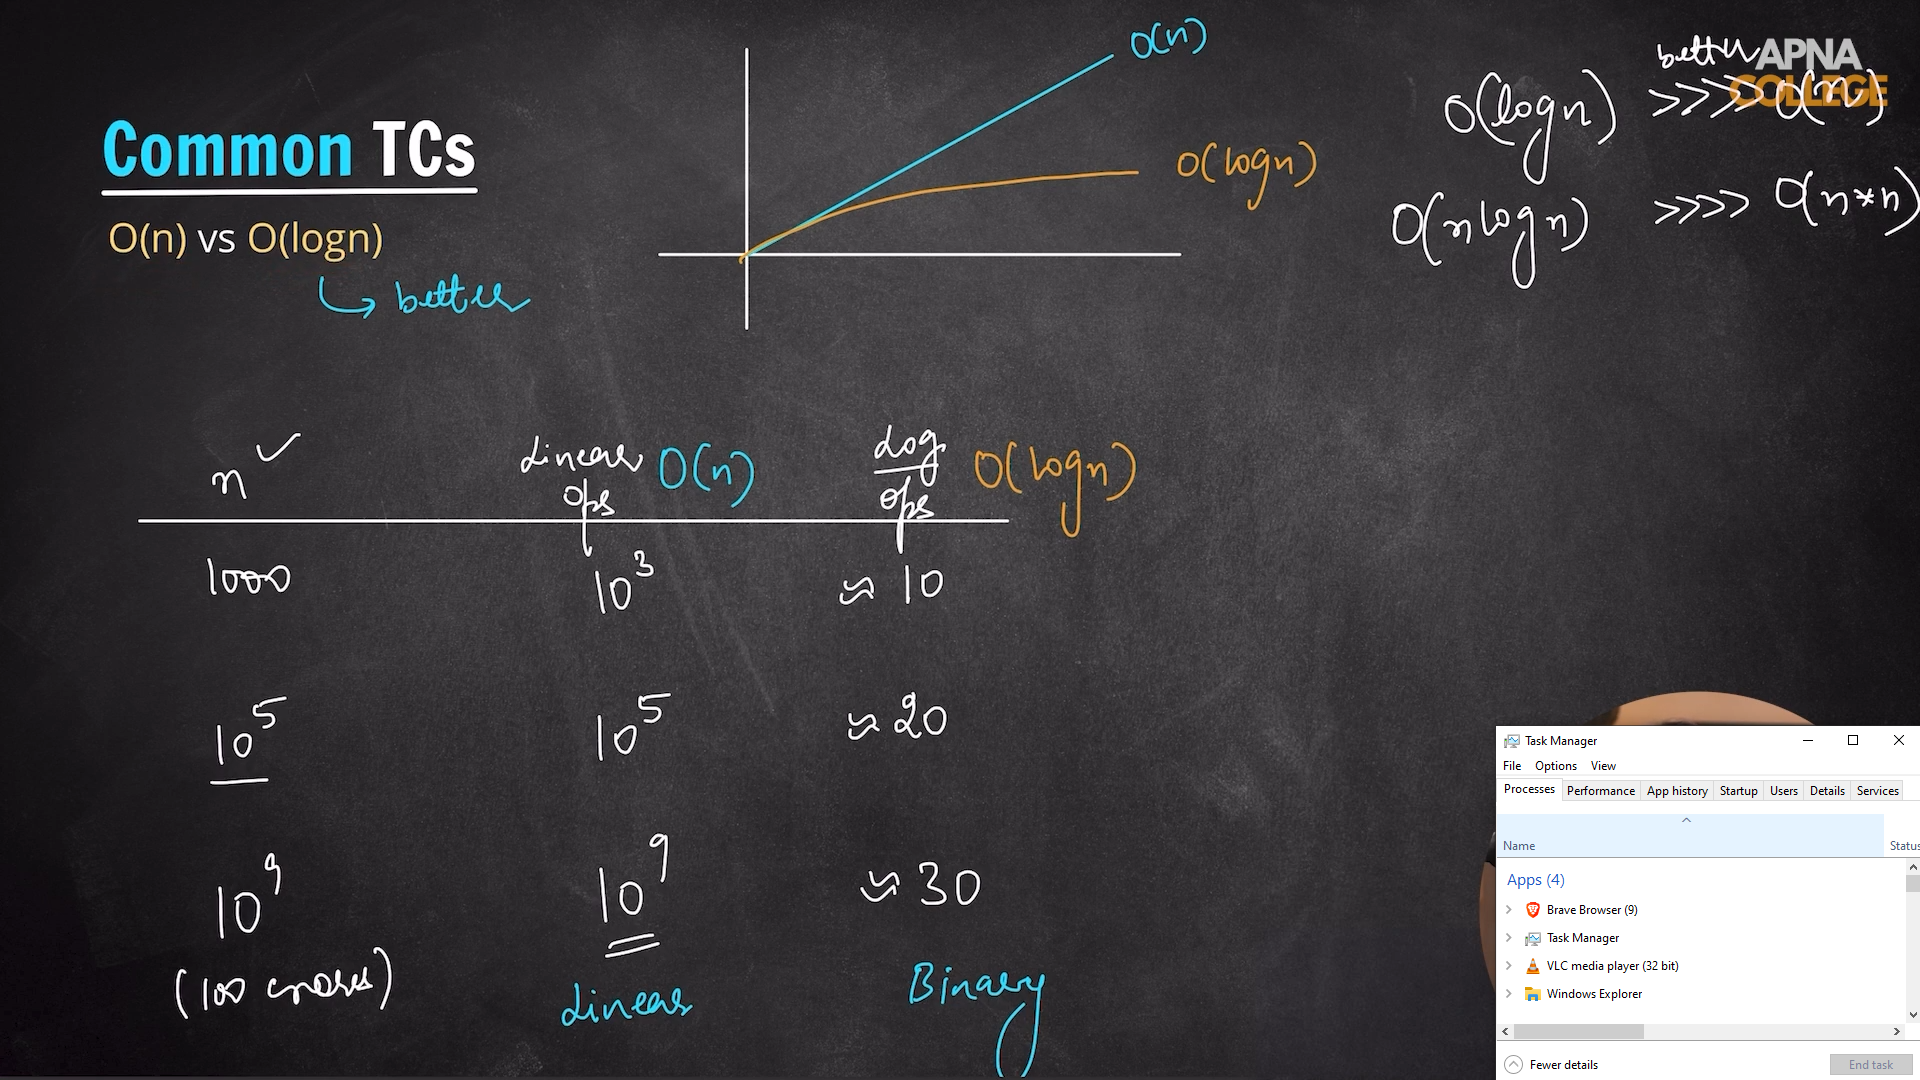 O(n)
better
APNA
COLLEGE
O(logn) >>>> O(n)
Common TCs
O(logn)
O(nlogn) >>>> O(n*n)
O(n) vs O(logn)
better
n Linear ops O(n) Log ops O(logn)
1000 10³ ≈ 10
10⁵ 10⁵ ≈ 20
10⁹ 10⁹ ≈ 30
(100 crores) Linear Binary
Task Manager
File Options View
Processes Performance App history Startup Users Details Services
Name Status
Apps (4)
Brave Browser (9)
Task Manager
VLC media player (32 bit)
Windows Explorer
Fewer details End task